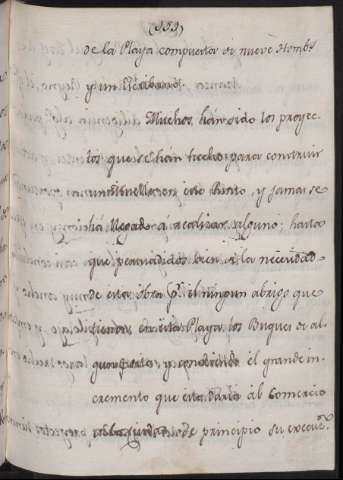 (111)
de la Playa compuertos de nueve Homb.s
y un Escribano.
Muchos han sido los proyec-
tos que se han hecho para construir
un Muelle en este Punto, y jamas se
há llegado á realizar alguno; hasta
que persuadidos bien de la necesidad
de esta obra p.r el ningun abrigo que
tienen en esta Playa los Buques de al-
gun porte, y conociendo él grande in-
cremento que esta daria ál Comercio
se dió principio su execuz.n